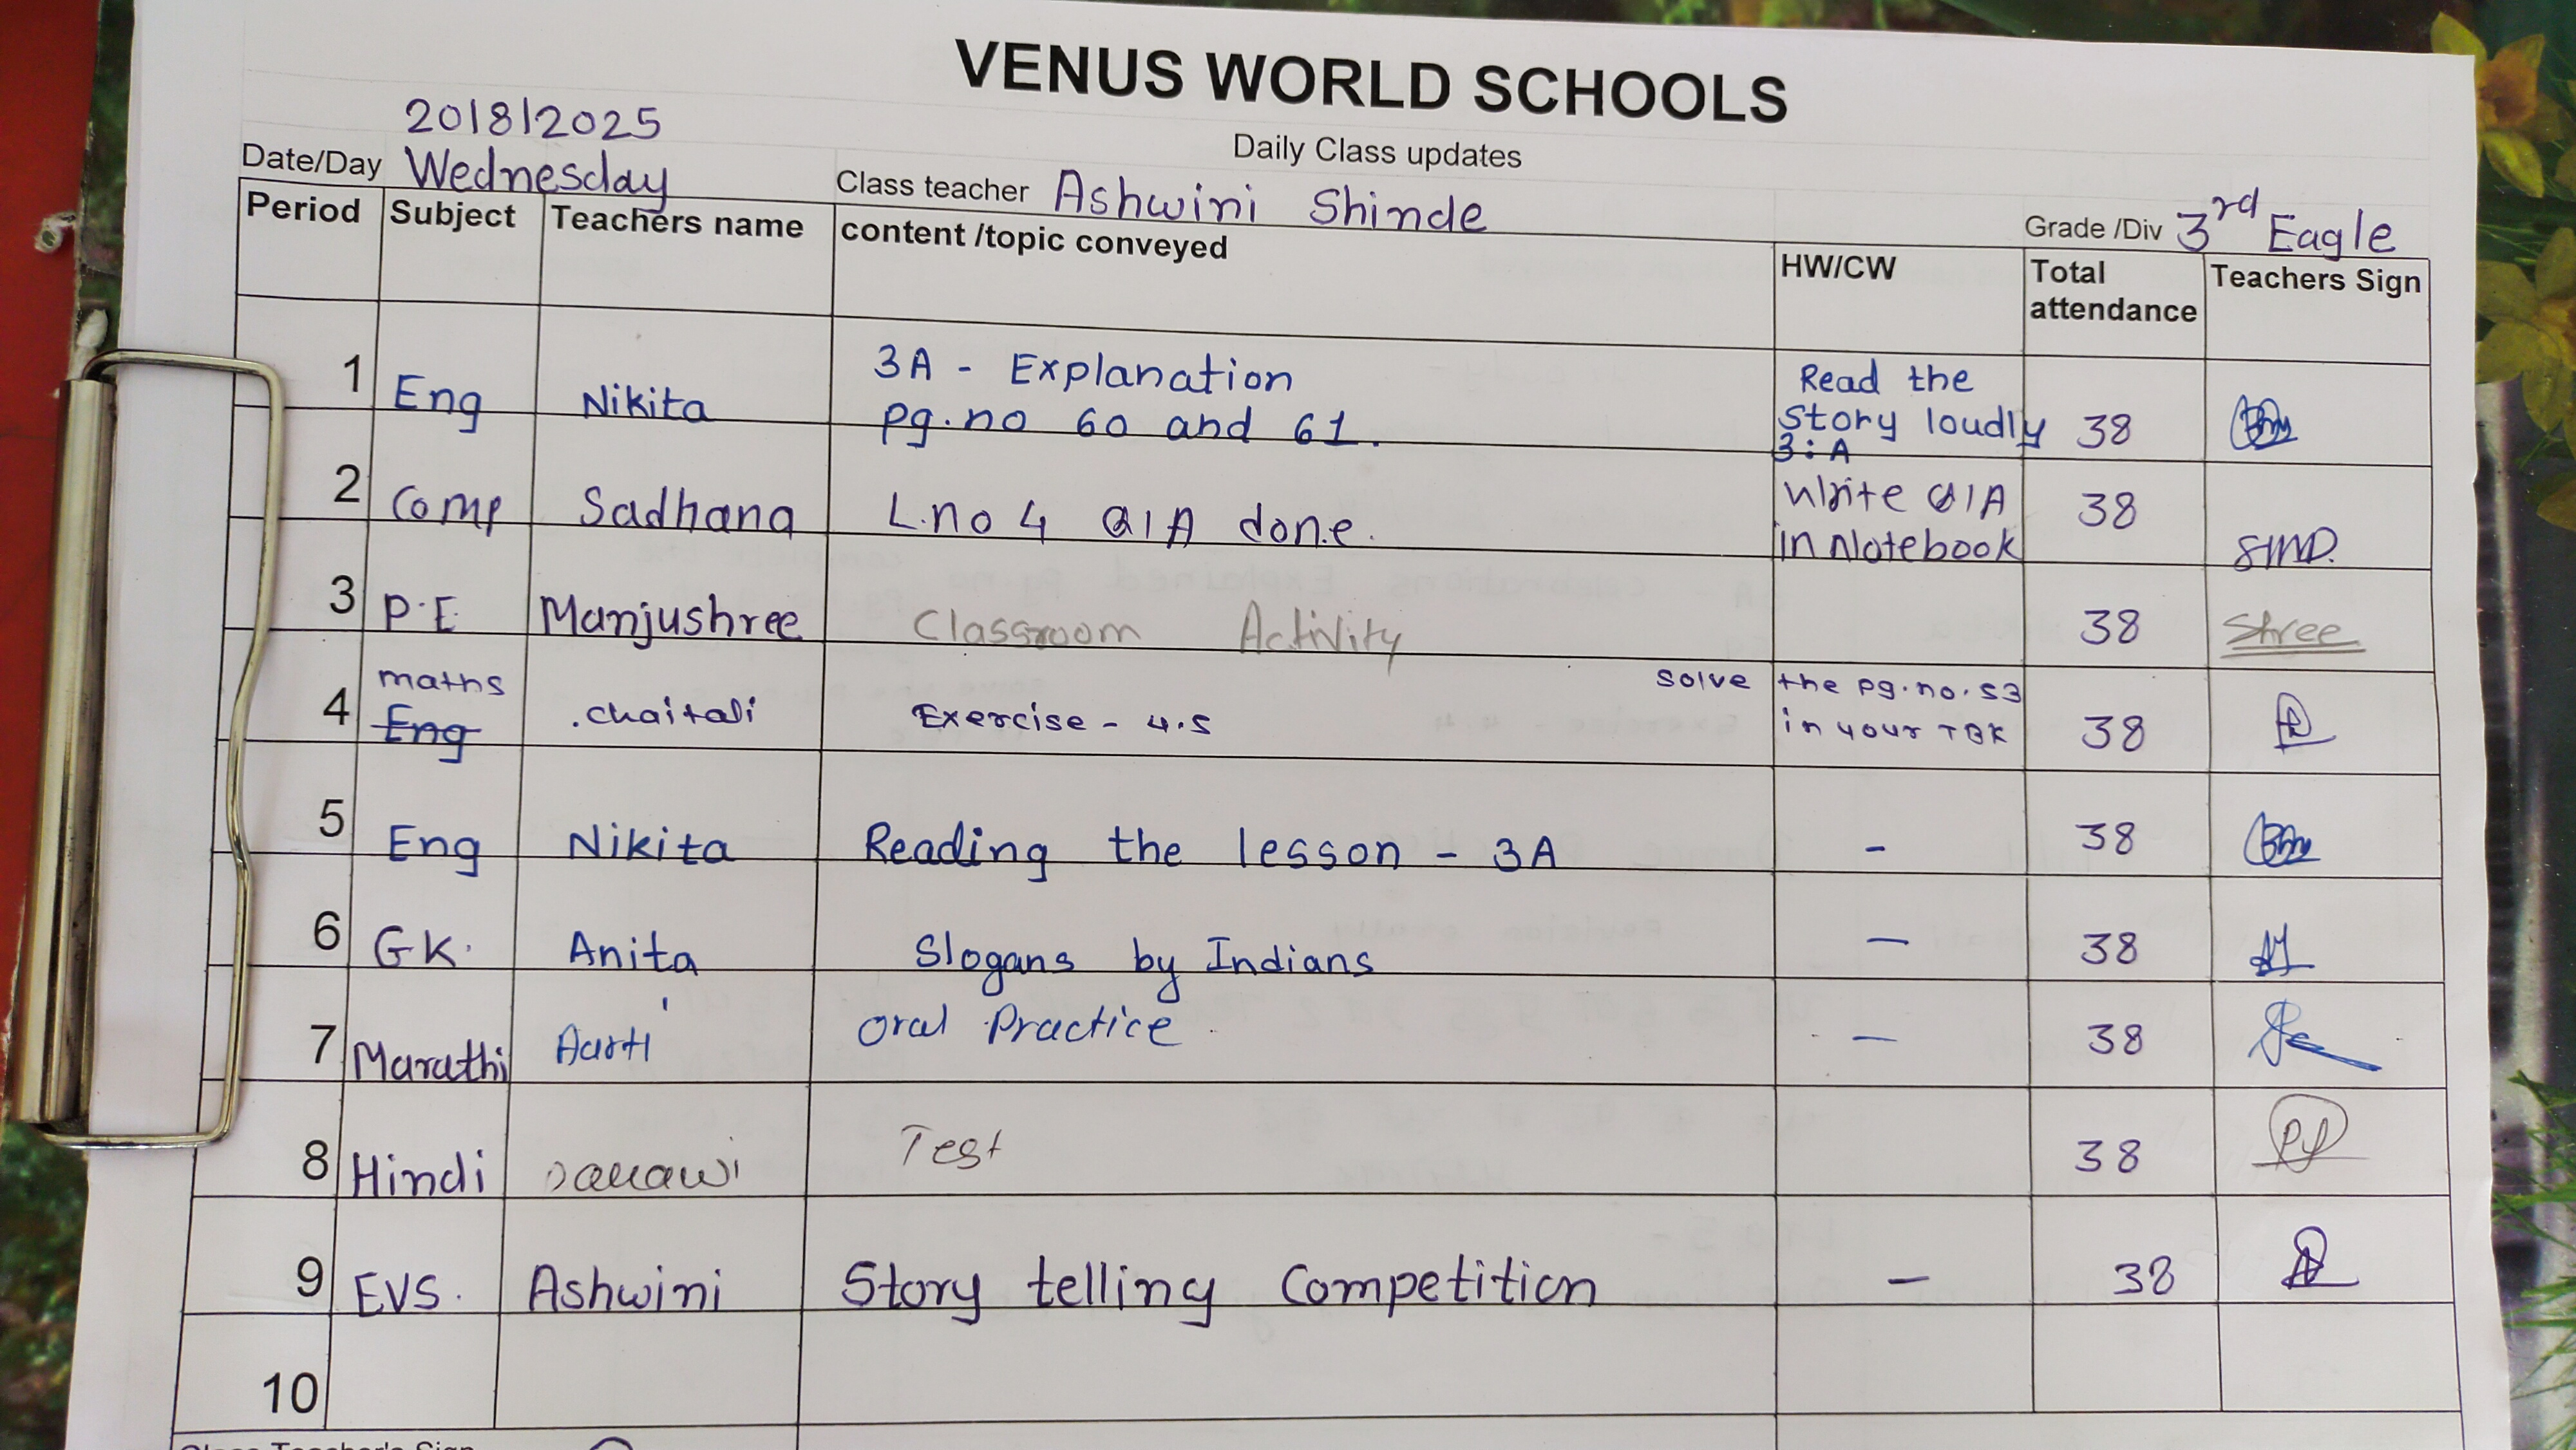 VENUS WORLD SCHOOLS
Daily Class updates
20/8/2025
Date/Day Wednesday Class teacher Ashwini Shinde Grade /Div 3rd Eagle
Period Subject Teachers name content /topic conveyed HW/CW Total attendance Teachers Sign
1 Eng Nikita 3A - Explanation pg.no 60 and 61. Read the story loudly 3:A 38
2 Comp Sadhana L.no 4 Q/A done. Write Q/A in Notebook 38 SMD.
3 P.E Manjushree Classroom Activity 38 Shree
4 maths Eng chaitali Exercise - 4.5 solve the pg.no.53 in your TBK 38
5 Eng Nikita Reading the lesson - 3A - 38
6 G.K. Anita Slogans by Indians - 38
7 Marathi Aarti Oral Practice - 38
8 Hindi Test 38
9 EVS. Ashwini Story telling Competition - 38
10